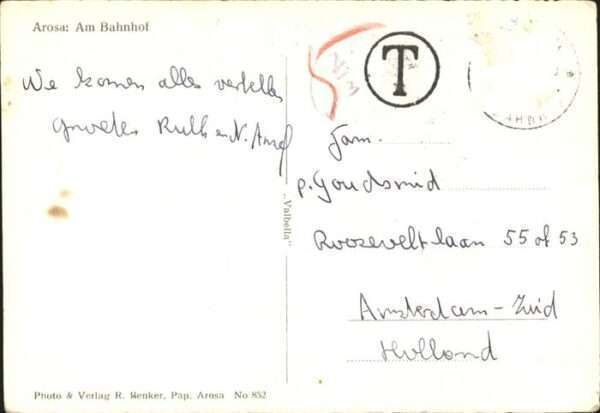 Arosa: Am Bahnhof
T
We komen alles vertellen
Groeten Ruth en N.
Fam.
p. Goudsmid
Rooseveltlaan 55 of 53
Amsterdam-Zuid
Holland
„Valbella"
Photo & Verlag R. Henker, Pap. Arosa No 852